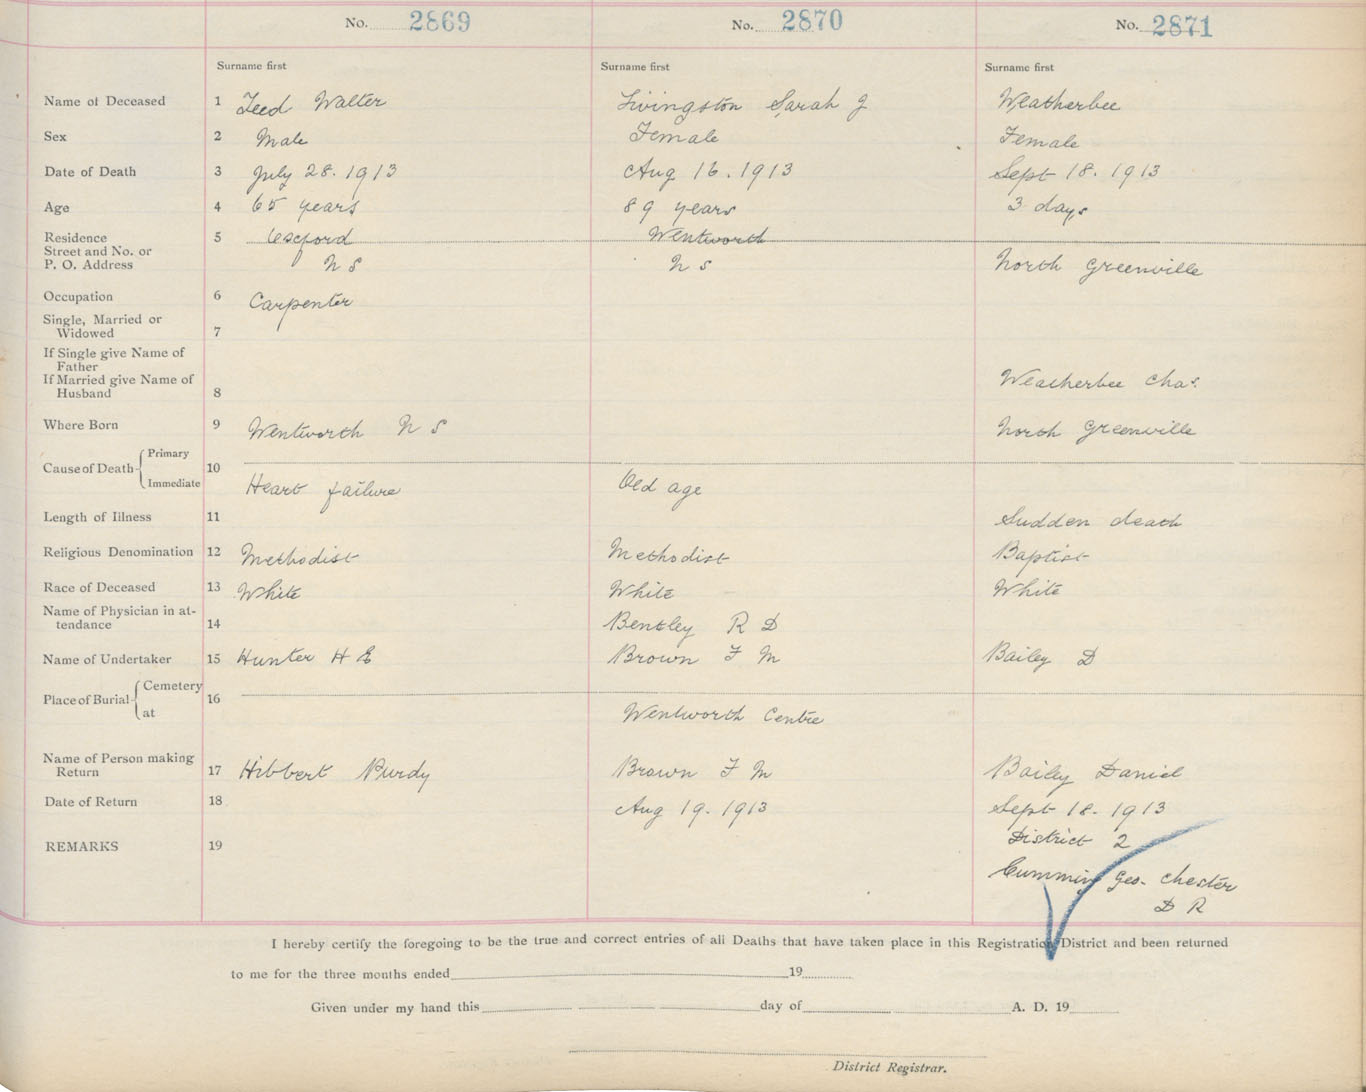 No. 2869 No. 2870 No. 2871
Surname first Surname first Surname first
Name of Deceased 1 Teed Walter Livingston Sarah J Weatherbee
Sex 2 Male Female Female
Date of Death 3 July 28. 1913 Aug 16. 1913 Sept 18. 1913
Age 4 65 years 89 years 3 days
Residence 5 Oxford Wentworth
Street and No. or
P. O. Address N S N S North Greenville
Occupation 6 Carpenter
Single, Married or
Widowed 7
If Single give Name of
Father
If Married give Name of Weatherbee Chas.
Husband 8
Where Born 9 Wentworth N S North Greenville
Primary
Cause of Death 10
Immediate Heart failure Old age
Length of Illness 11 Sudden death
Religious Denomination 12 Methodist Methodist Baptist
Race of Deceased 13 White White White
Name of Physician in at-
tendance 14 Bentley R D
Name of Undertaker 15 Hunter H E Brown F M Bailey D
Cemetery
Place of Burial 16
at Wentworth Centre
Name of Person making
Return 17 Hibbert Purdy Brown F M Baily Daniel
Date of Return 18 Aug 19. 1913 Sept 18. 1913
REMARKS 19 District 2
Cummin Geo. Chester
D R
I hereby certify the foregoing to be the true and correct entries of all Deaths that have taken place in this Registration District and been returned
to me for the three months ended 19
Given under my hand this day of A. D. 19
District Registrar.